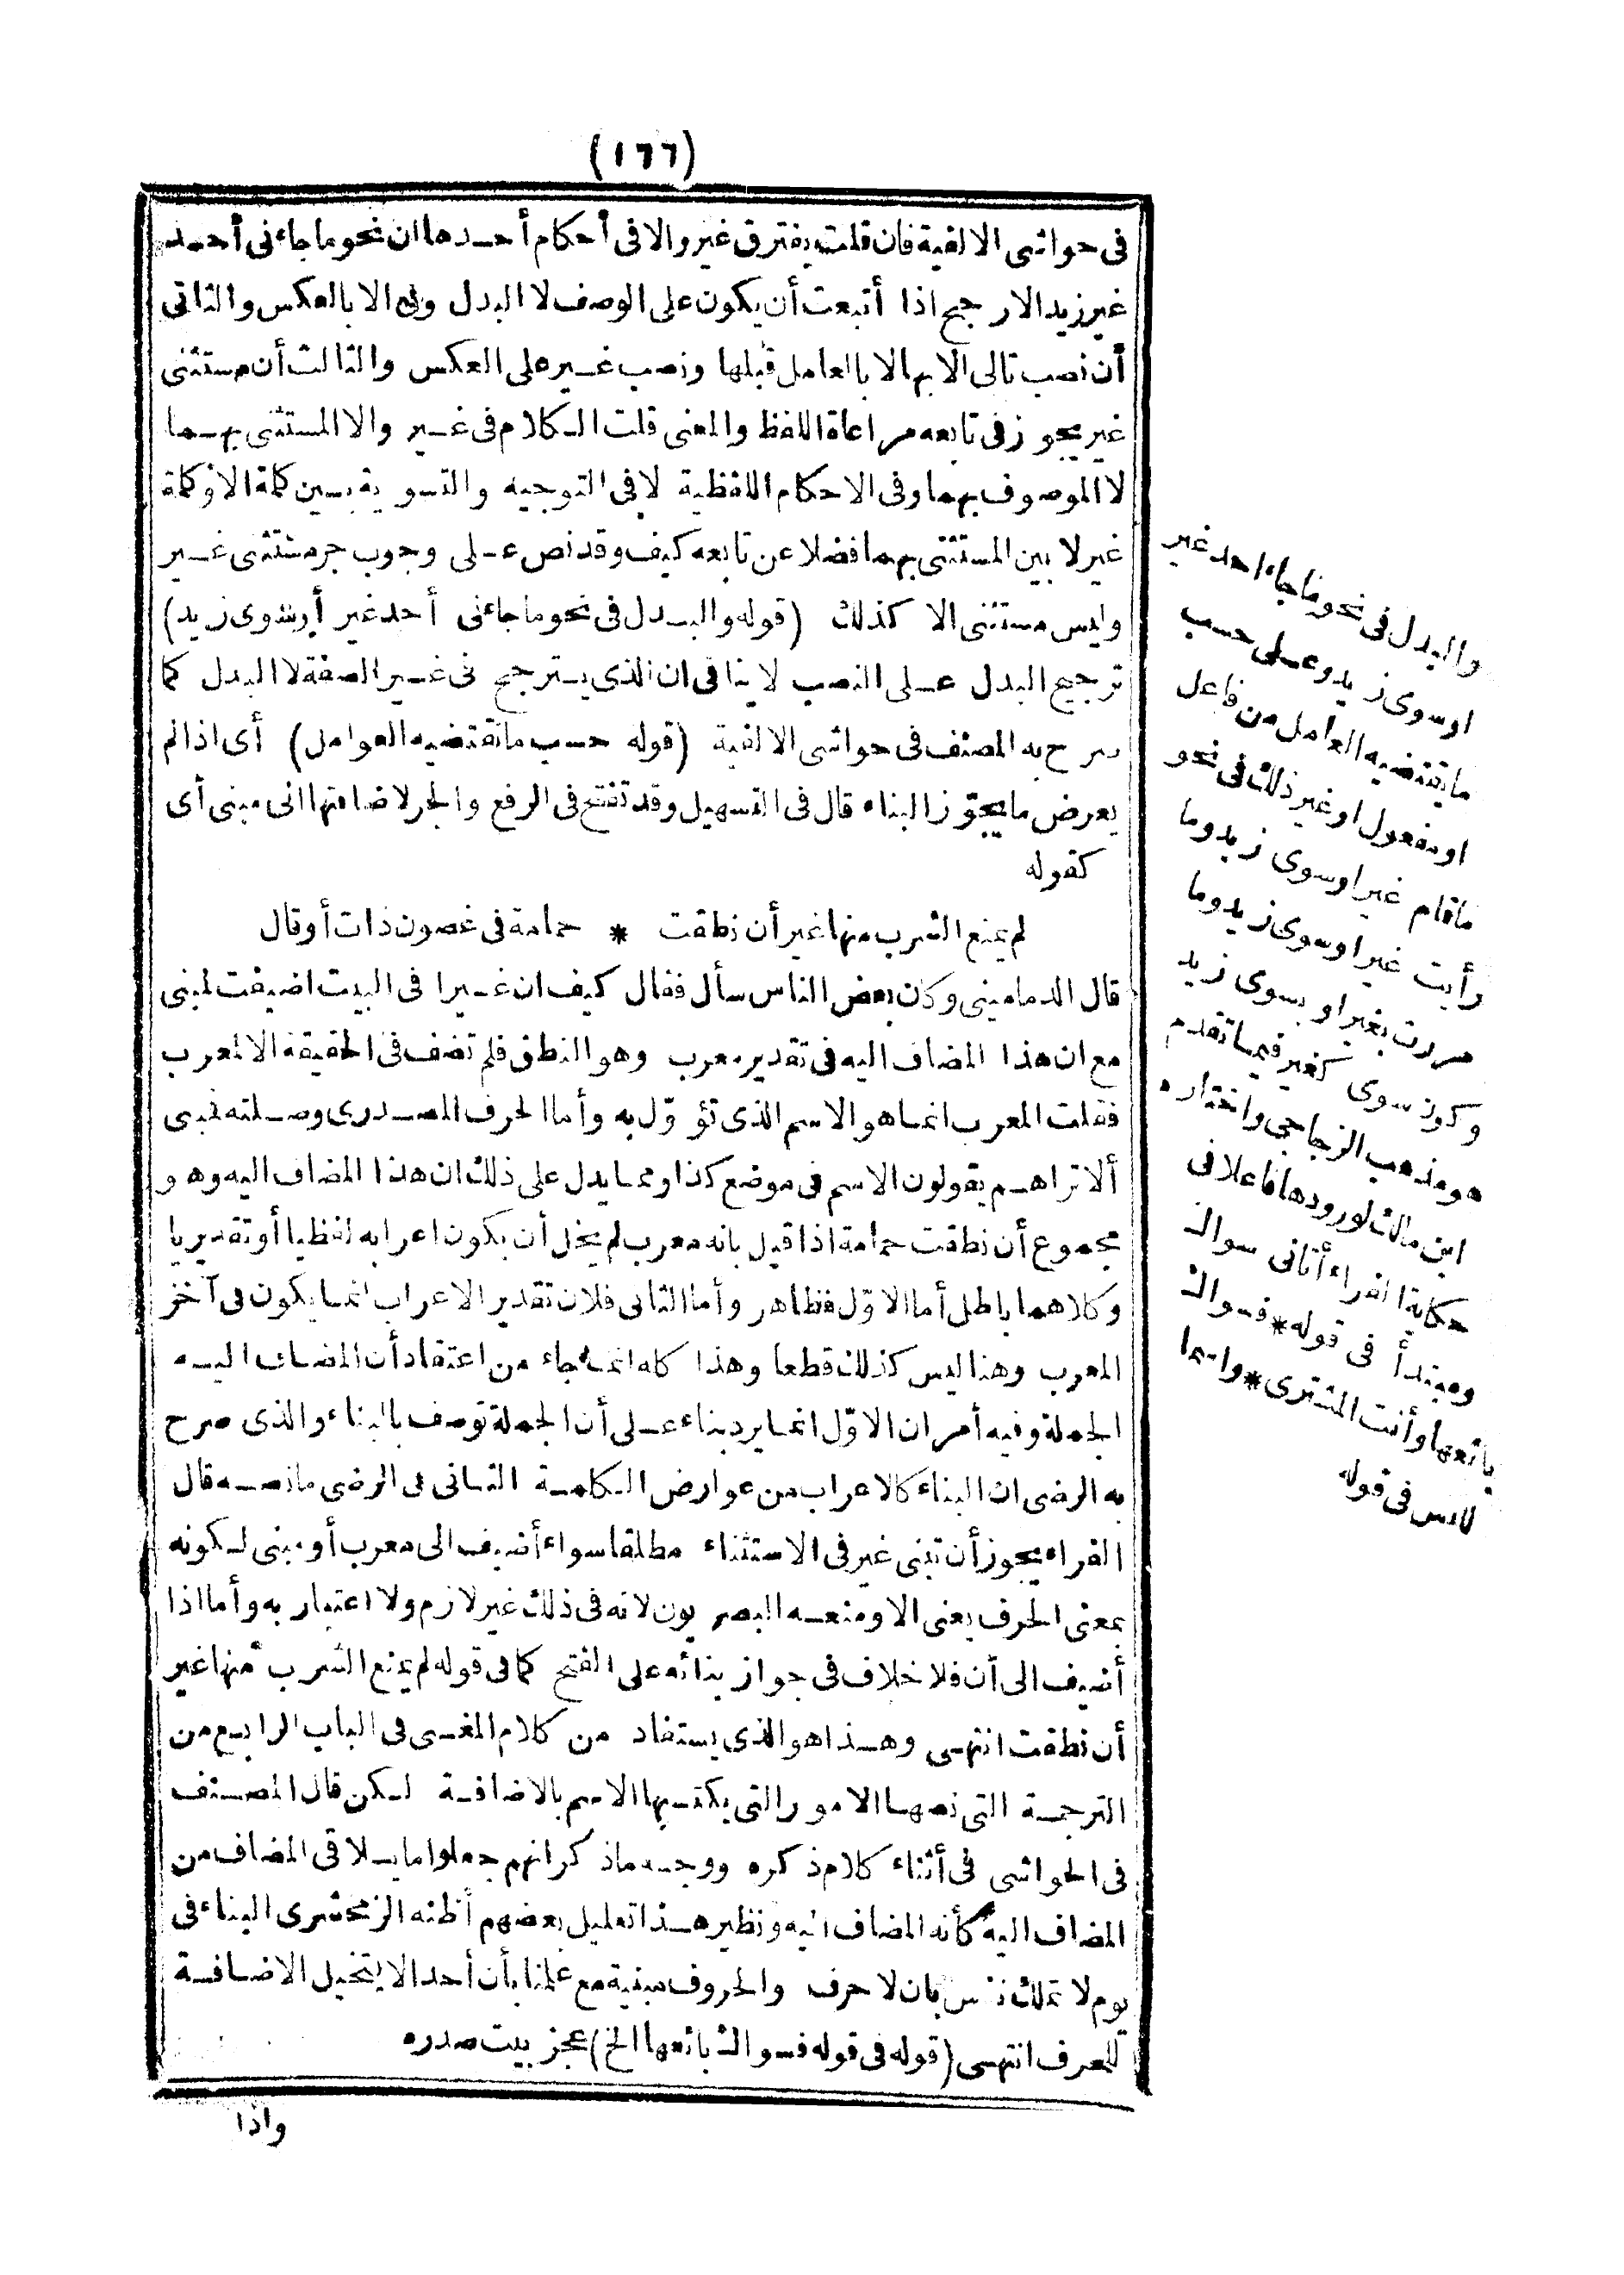 (١٦٦)
فى حواشى الالفية فان قلت يفترق غير والا فى أحكام أحدها ان نحو ما جاءنى أحد
غير زيد الارجح اذا أتبعت أن يكون على الوصف لا البدل وفى الا بالعكس والثانى
أن نصب تالى الا بها لا بالعامل قبلها ونصب غير على العكس والثالث أن مستثنى
غير يجوز فى تابعه مراعاة اللفظ والمعنى قلت الكلام فى غير والا المستثنى بهما
لا الموصوف بهما وفى الاحكام اللفظية لا فى التوجيه والتسوية بين كلمة الا وكلمة
غير لا بين المستثنى بهما فضلا عن تابعه كيف وقد نص على وجوب جر مستثنى غير
وليس مستثنى الا كذلك (قوله والبدل فى نحو ما جاءنى أحد غير أو سوى زيد)
ترجيح البدل على النصب لا ينافى ان الذى يترجح فى غير الصفة لا البدل كما
صرح به المصنف فى حواشى الالفية (قوله حسب ما تقتضيه العوامل) أى اذا لم
يعرض ما يجوّز البناء قال فى التسهيل وقد تفتح فى الرفع والجر لاضافتها الى مبنى أى
كقوله
لم يمنع الشرب منها غير أن نطقت * حمامة فى غصون ذات أوقال
قال الدمامينى وكان بعض الناس سأل فقال كيف ان غيرا فى البيت اضيفت لمبنى
مع ان هذا المضاف اليه فى تقدير معرب وهو النطق فلم تضف فى الحقيقة الا لمعرب
فقلت المعرب انما هو الاسم الذى تؤوّل به وأما الحرف المصدرى وصلته فمبنى
ألا تراهم يقولون الاسم فى موضع كذا ومما يدل على ذلك ان هذا المضاف اليه وهو
مجموع أن نطقت حمامة اذا قيل بانه معرب لم يخل أن يكون اعرابه لفظيا أو تقديريا
وكلاهما باطل أما الاوّل فظاهر وأما الثانى فلان تقدير الاعراب انما يكون فى آخر
المعرب وهنا ليس كذلك قطعا وهذا كله انما جاء من اعتقاد أن المضاف اليه
الجملة وفيه أمران الاوّل انما يرد بناء على أن الجملة توصف بالبناء والذى صرح
به الرضى ان البناء كالاعراب من عوارض الكلمة الثانى فى الرضى ما نصه قال
الفراء يجوز أن تبنى غير فى الاستثناء مطلقا سواء أضيف الى معرب أو مبنى لكونه
بمعنى الحرف يعنى الا ومنعه البصريون لانه فى ذلك غير لازم ولا اعتبار به وأما اذا
أضيف الى أن فلا خلاف فى جواز بنائه على الفتح كما فى قوله لم يمنع الشرب منها غير
أن نطقت انتهى وهذا هو الذى يستفاد من كلام المغنى فى الباب الرابع من
الترجمة التى نصها الامور التى يكتسبها الاسم بالاضافة لكن قال المصنف
فى الحواشى فى أثناء كلام ذكره ووجه ما ذكر انهم جعلوا ما يلاقى المضاف من
المضاف اليه كأنه المضاف اليه ونظير هذا تعليل بعضهم أظنه الزمخشرى البناء فى
يوم لا تملك نفس بان لا حرف والحروف مبنية مع علمنا بأن أحدا لا يتخيل الاضافة
للحرف انتهى (قوله فى قوله فسواك بائعها الخ) عجز بيت صدره
واذا
والبدل فى نحو ما جاء احد غير
او سوى زيد وعلى حسب
ما يقتضيه العامل من فاعل
او مفعول او غير ذلك فى نحو
ما قام غير او سوى زيد وما
رأيت غير او سوى زيد وما
مررت بغير او بسوى زيد
وكون سوى كغير فيما تقدم
هو مذهب الزجاجى واختاره
ابن مالك لورودها فاعلا فى
حكاية الفراء أتانى سواك
ومبتدأ فى قوله * فسواك
بائعها وأنت المشترى * واسما
لليس فى قوله